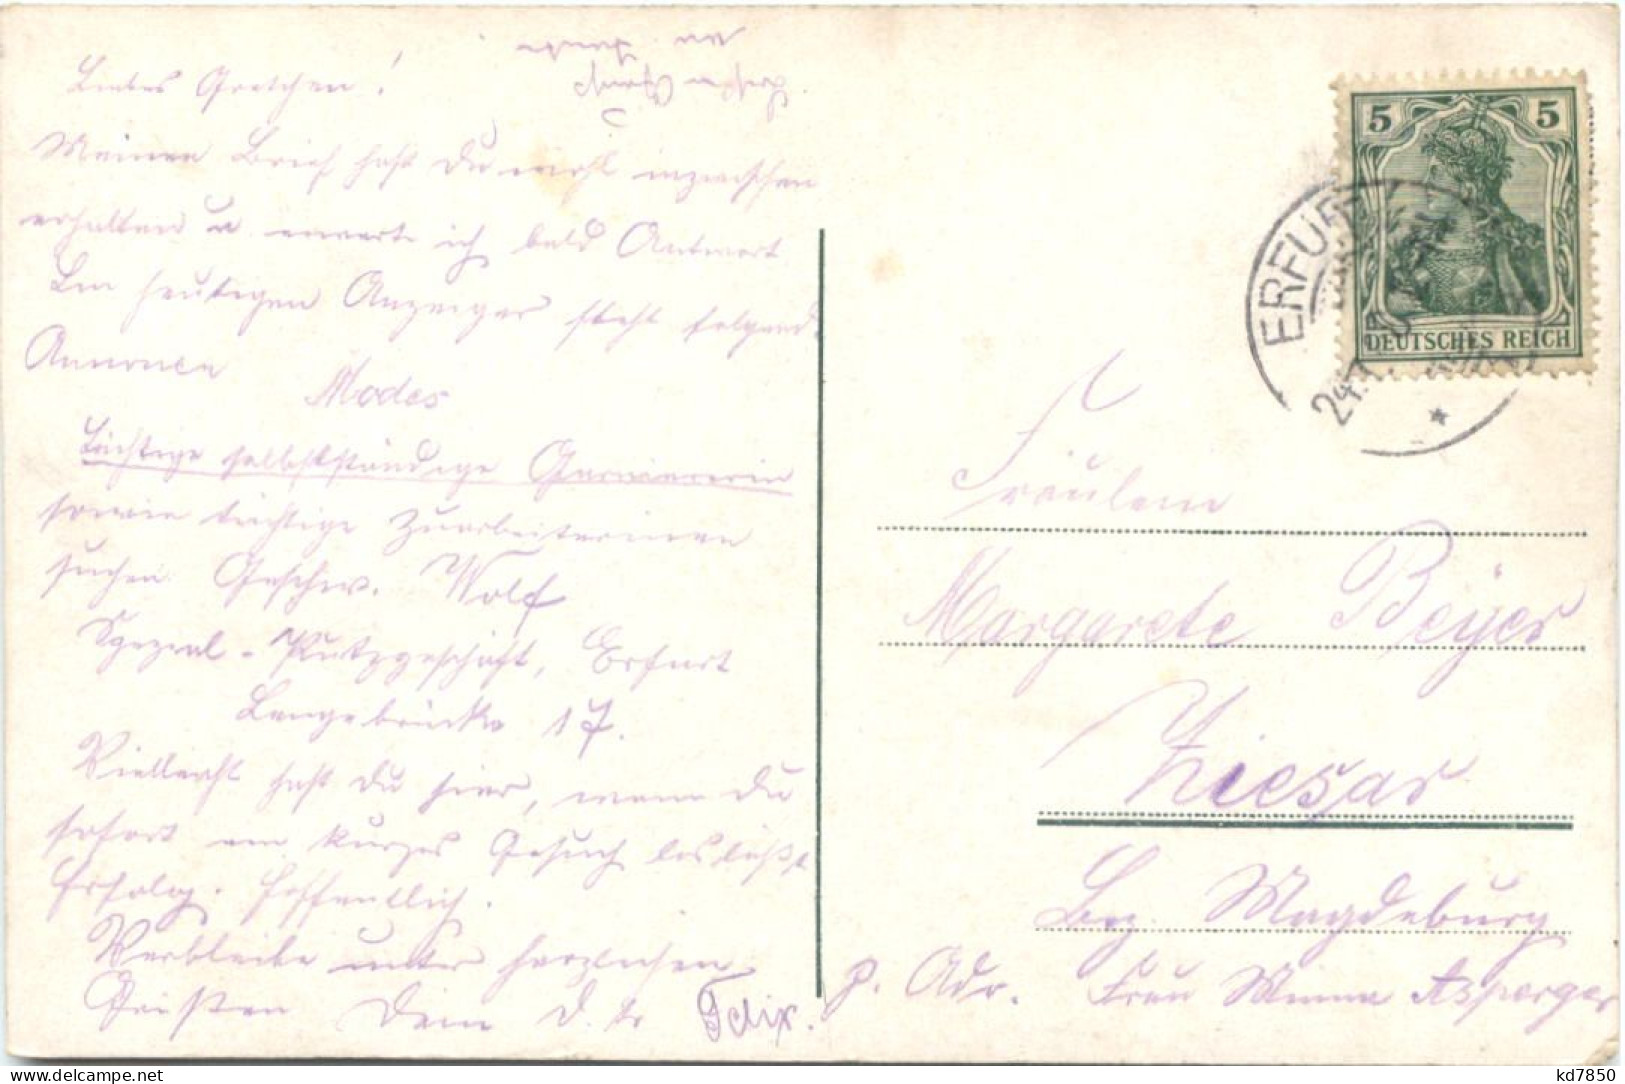 Liebes Gretchen!
Meinen Brief hast Du wohl inzwischen
erhalten u. erwarte ich bald Antwort
Im heutigen Anzeiger steht folgende
Annonce
Modes
Tüchtige selbstständige Garniererin
sowie tüchtige Zuarbeiterinnen
suchen Geschw. Wolf
Spezial-Putzgeschäft, Erfurt
Langebrücke 17.
Vielleicht hast Du hier, wenn Du
sofort ein kurzes Gesuch losläßt
Erfolg. Hoffentlich.
Verbleibe unter herzlichen
Grüßen Dein d. tr Felix.
5 5
DEUTSCHES REICH
ERFURT
24.7.
*
Fräulein
Margarete Beyer
Ziesar
Bez. Magdeburg
p. Adr. Frau Minna Asperger
kd7850